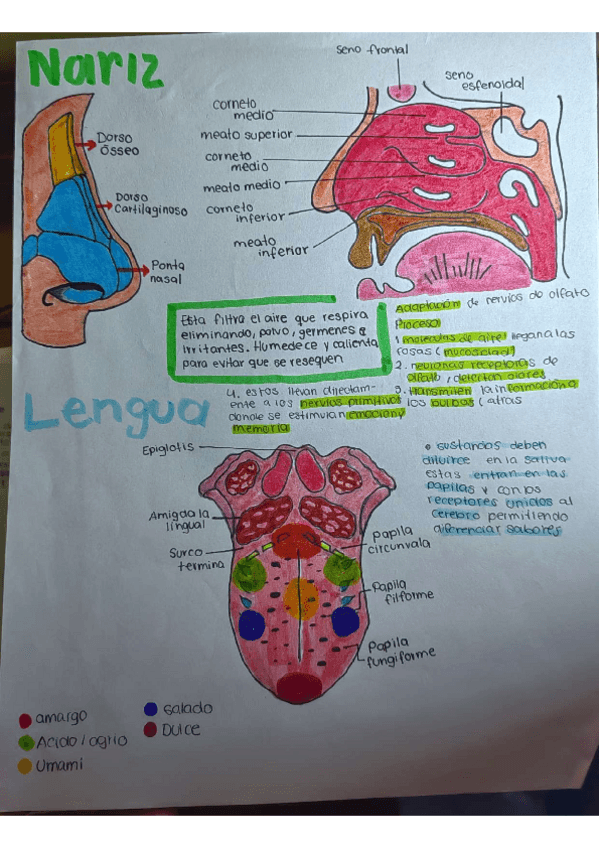 Nariz
Dorso
Óseeo
Dorso
Cartilaginoso
Ponta
nasal
seno frontal
seno
esfenoidal
corneto
medio
meato superior
corneto
medio
meato medio
corneto
inferior
meato
inferior
Esta filtra el aire que respira
eliminando, polvo, germenes e
irritantes. Humedece y calienta
para evitar que se resequen
Adaptación de nervios do olfato
Proceso
1. moleculas de aire llegan a las
rosas (mucosidad)
2. neuronas receptoras de
olfato, detectan olores
3. transmiten la información a
los bulbos (atras
4. estos llevan directam-
ente a los nervios primitivos
donde se estimulan emocion y
memoria
Lengua
Epiglotis
Amigdala
lingual
Surco
termina
Papila
circunvala
Papila
filforme
Papila
fungiforme
sustancias deben
diluirce en la saliva
estas entran en las
papilas y con los
receptores unidos al
cerebro permitiendo
diferenciar sabores
amargo
Acido/agrio
Umami
Salado
Dulce